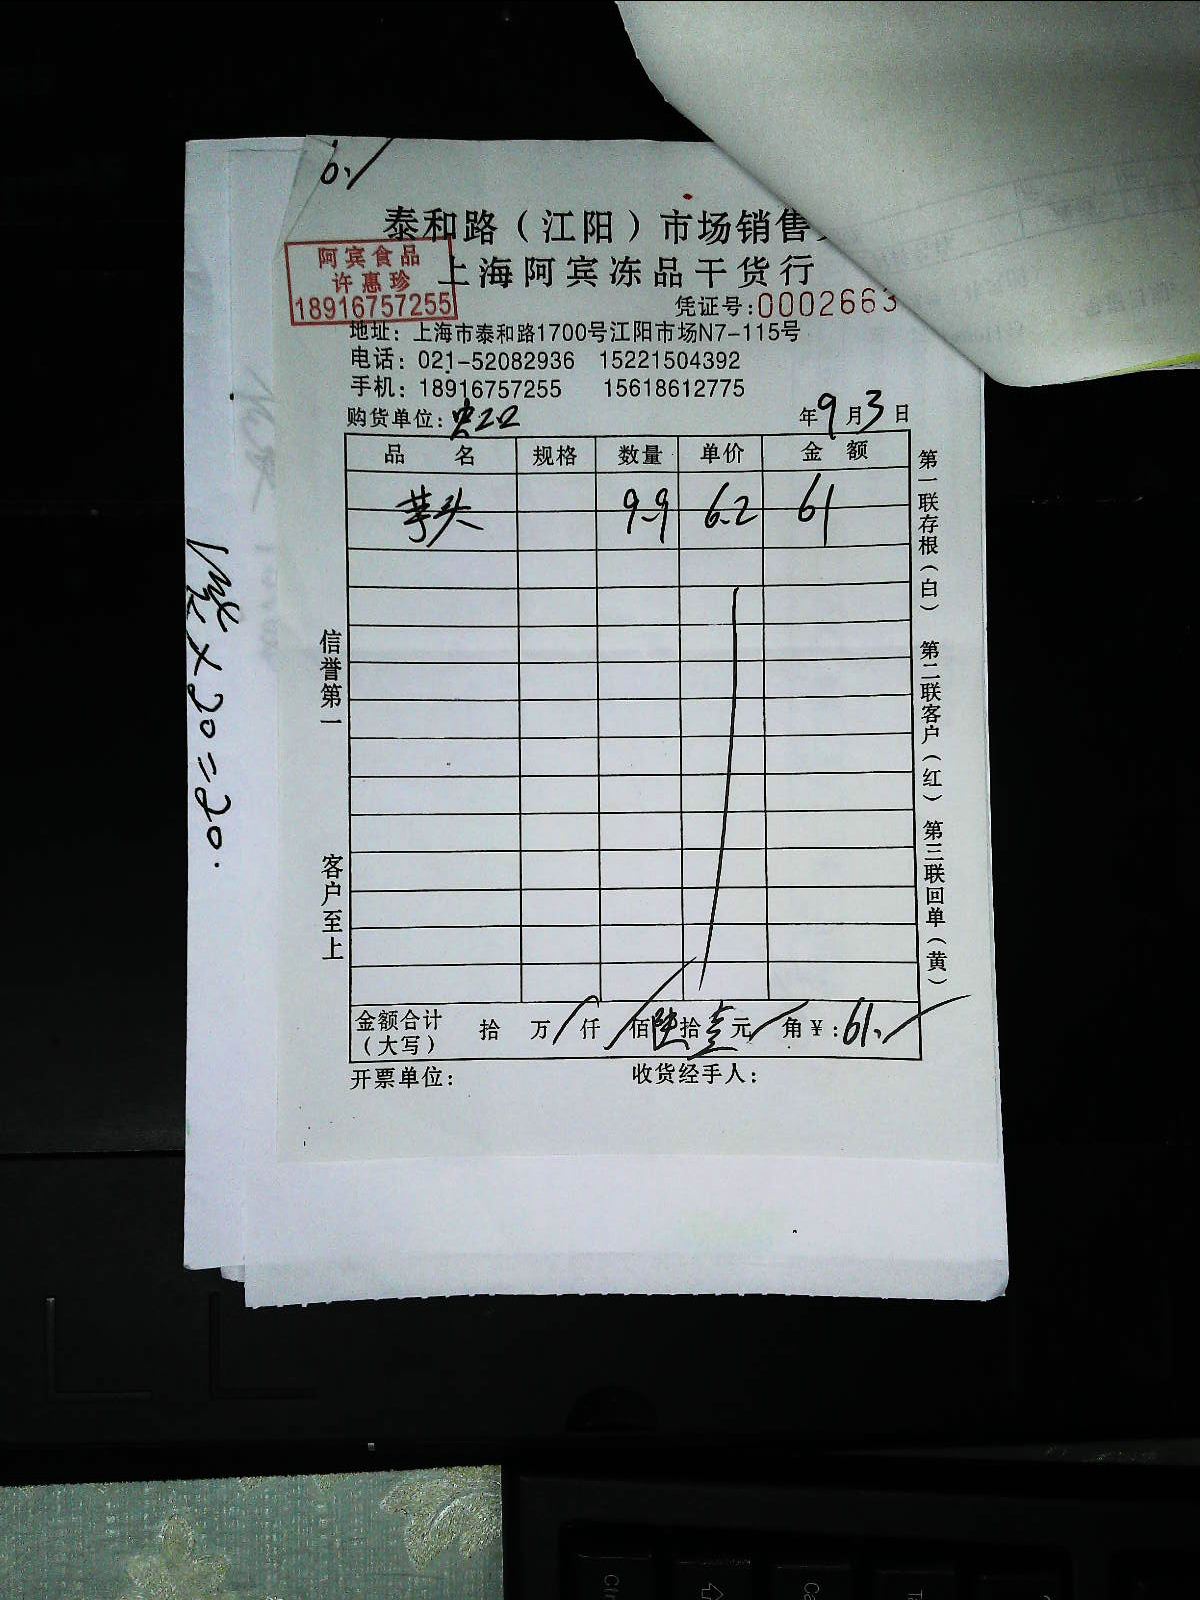 6.
泰和路（江阳）市场销售
上海阿宾冻品干货行
阿宾食品
许惠珍
18916757255
凭证号:0002663
地址：上海市泰和路1700号江阳市场N7-115号
电话：021-52082936 15221504392
手机：18916757255 15618612775
购货单位:
年9月3日
品 名 规格 数量 单价 金 额
芋头 9.9 6.2 61
金额合计（大写） 拾 万 仟 佰陆拾壹元 角￥:61.
开票单位: 收货经手人:
信誉第一 客户至上
第一联存根（白） 第二联客户（红） 第三联回单（黄）
+20=20.